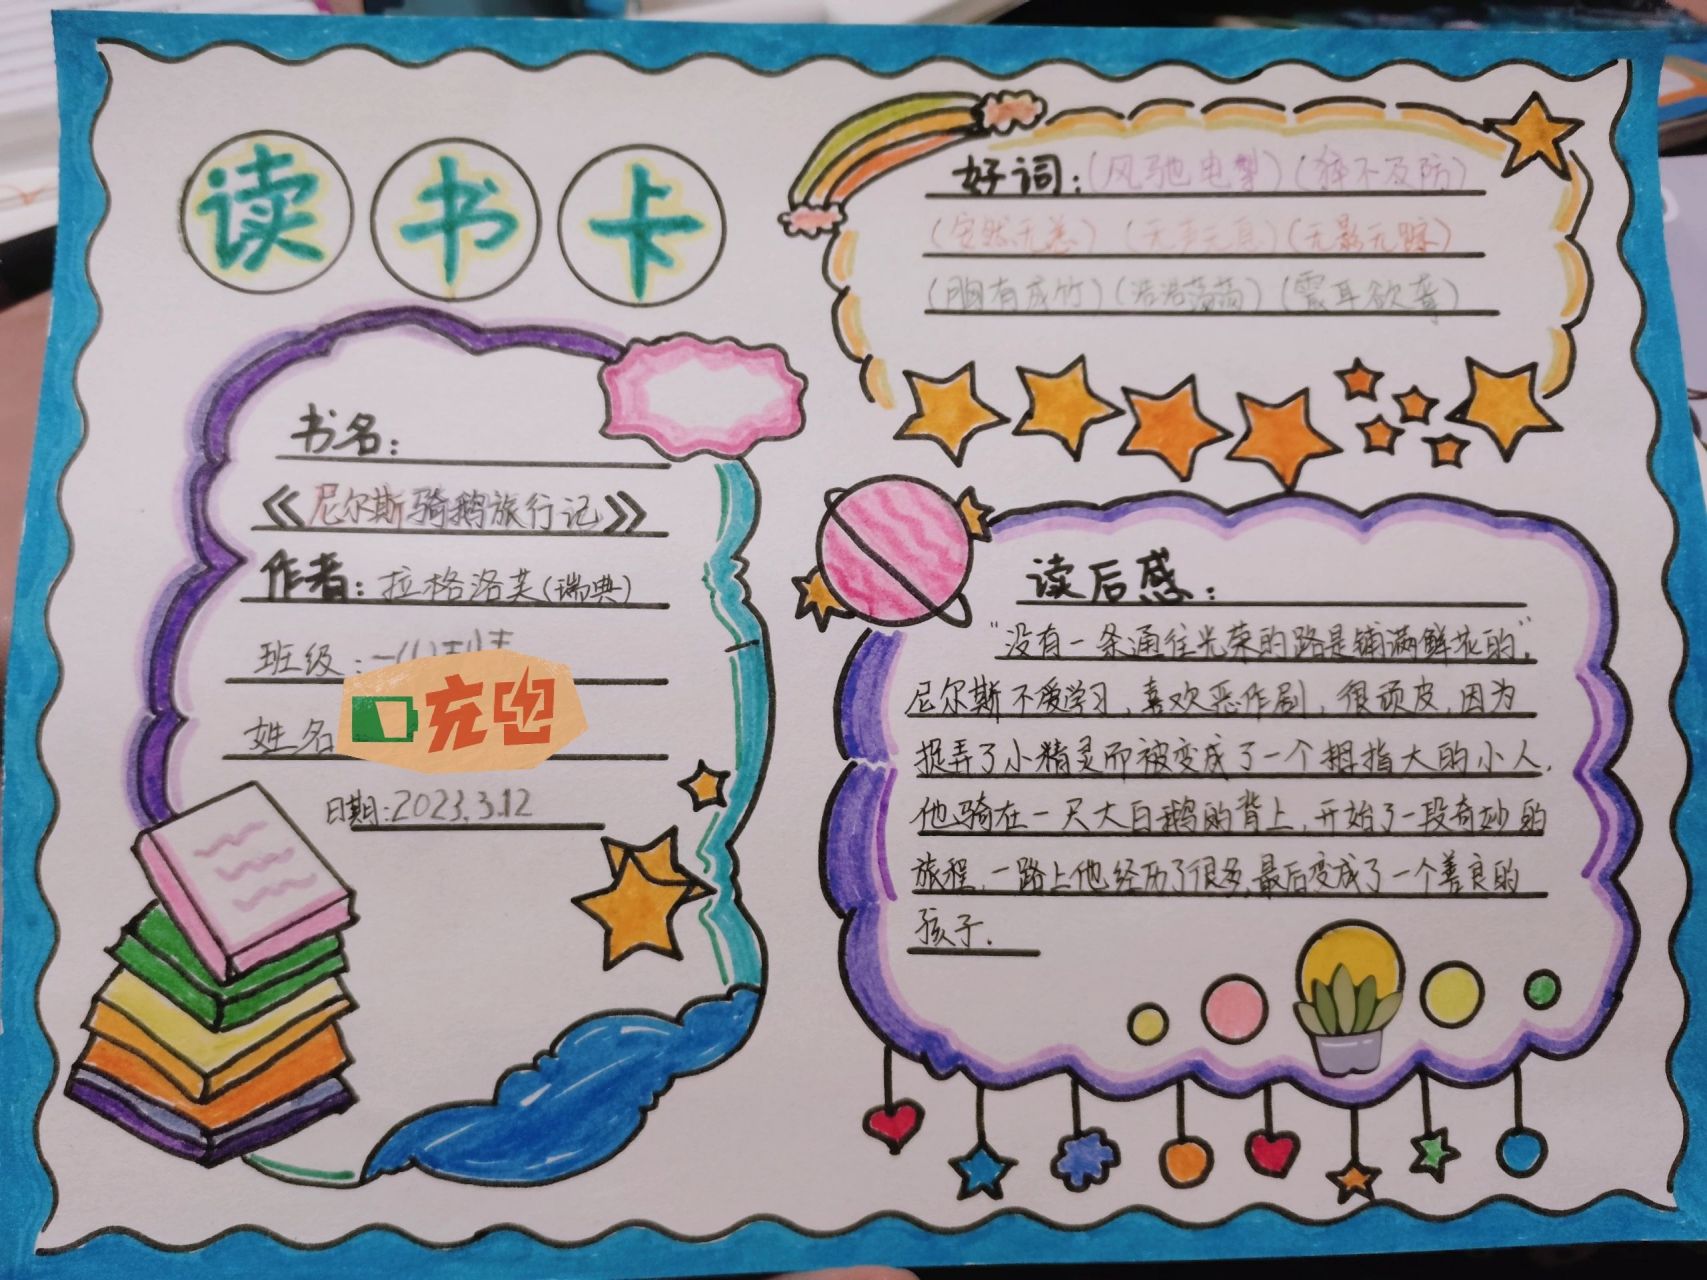 读书卡
书名：
《尼尔斯骑鹅旅行记》
作者：拉格洛芙（瑞典）
班级：
姓名
充电
日期：2023.3.12
好词：（风驰电掣）（猝不及防）
（安然无恙）（无声无息）（无影无踪）
（胸有成竹）（浩浩荡荡）（震耳欲聋）
读后感：
“没有一条通往光荣的路是铺满鲜花的”，
尼尔斯不爱学习，喜欢恶作剧，很顽皮，因为
捉弄了小精灵而被变成了一个拇指大的小人，
他骑在一只大白鹅的背上，开始了一段奇妙的
旅程，一路上他经历了很多，最后变成了一个善良的
孩子.